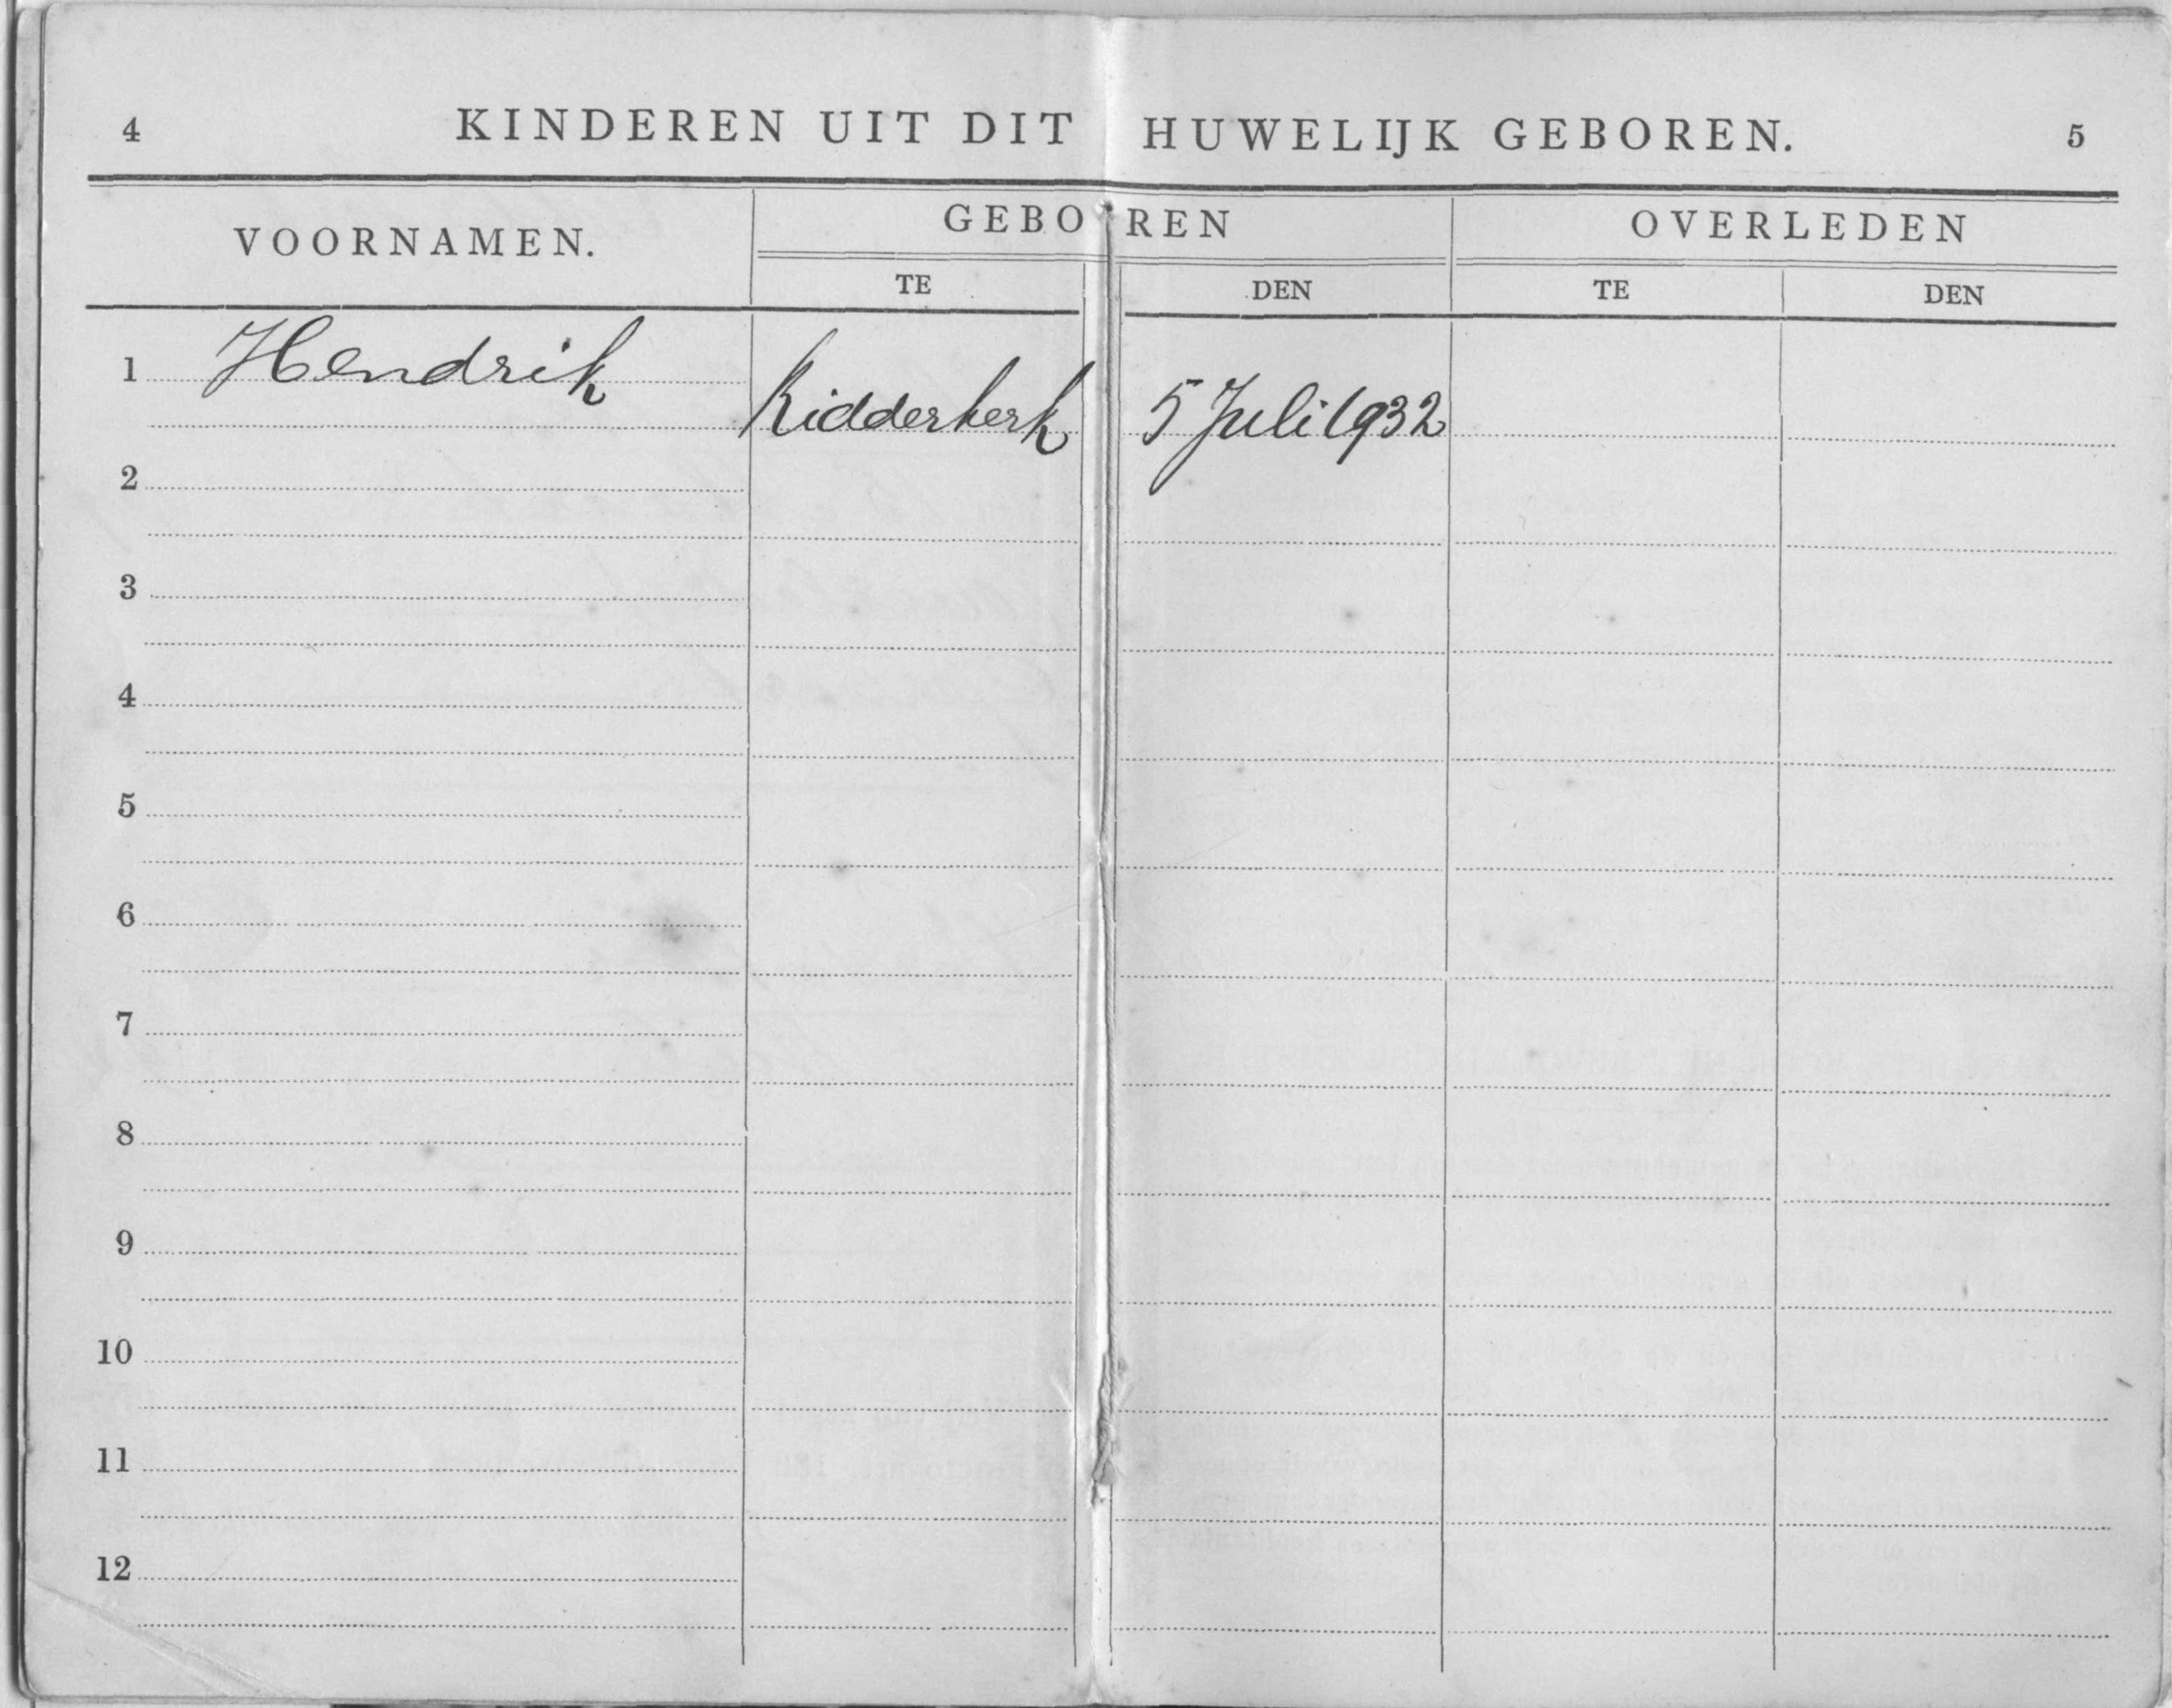 4 KINDEREN UIT DIT HUWELIJK GEBOREN. 5
VOORNAMEN. GEBOREN OVERLEDEN
TE DEN TE DEN
1 Hendrik
Ridderkerk 5 Juli 1932
2
3
4
5
6
7
8
9
10
11
12